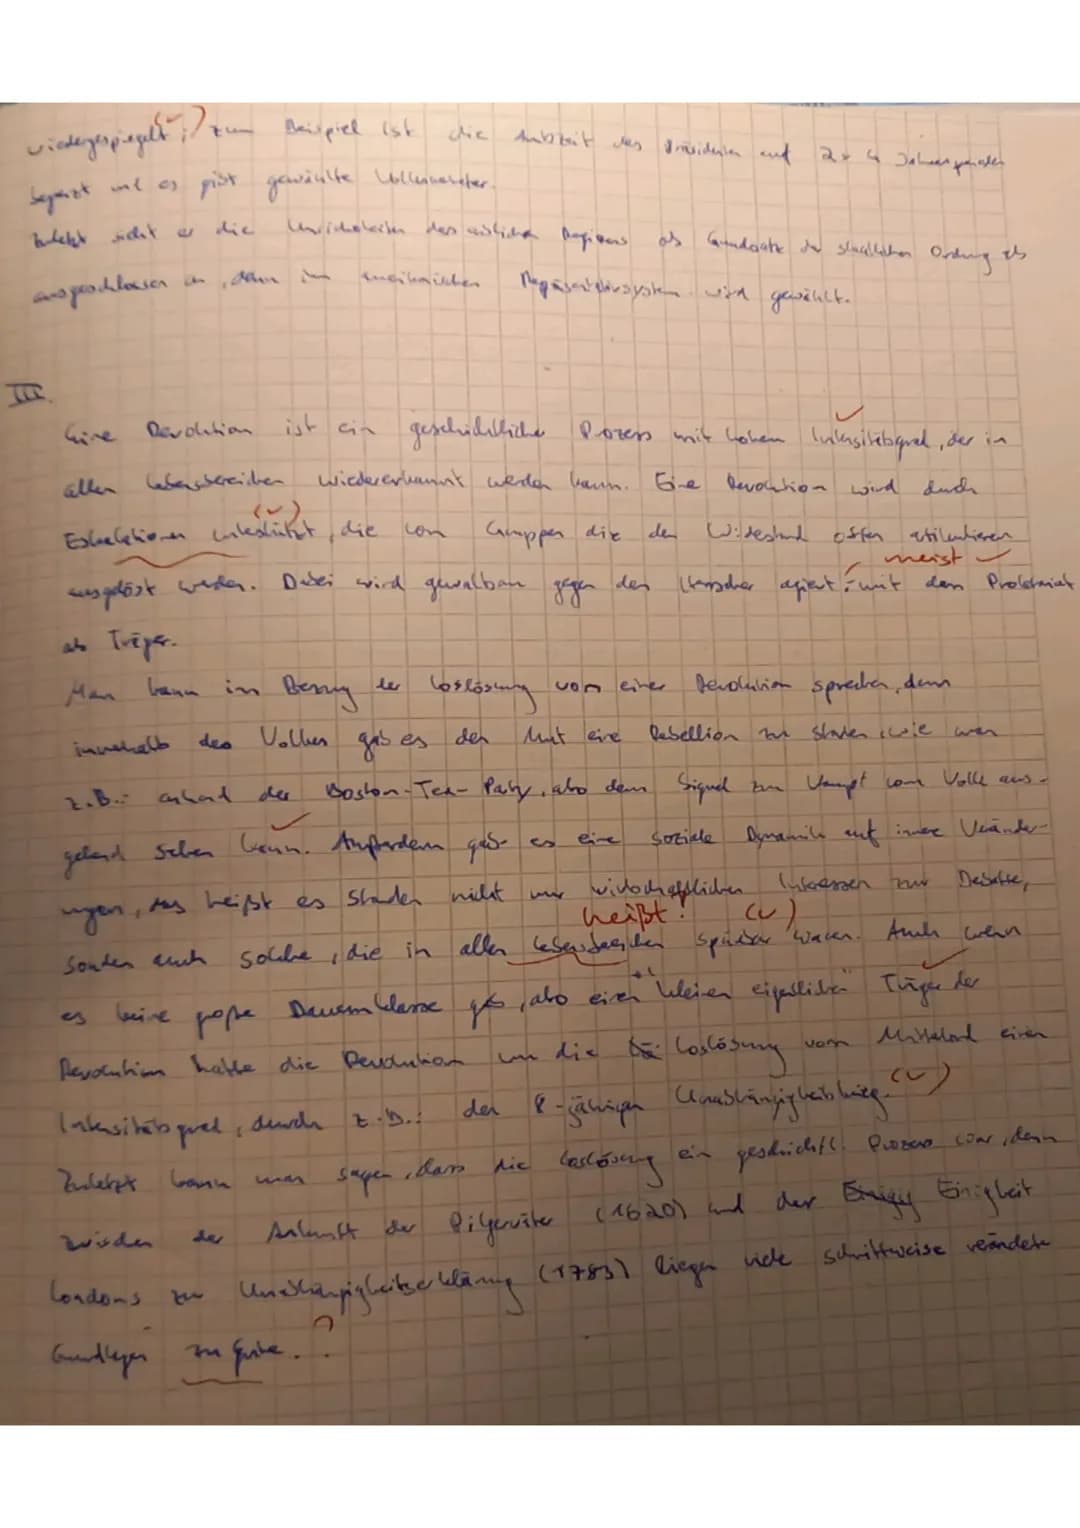 wiedergespiegelt; (✓) zum Beispiel ist die Amtszeit des Präsidenten auf 2 x 4 Jahresperioden
begrenzt und es gibt gewählte Volksvertreter.
Zuletzt sieht er die des erblichen Regierens als Grundsatz der staatlichen Ordnung als
ausgeschlossen an, denn im amerikanischen Repräsentativsystem wird gewählt.
III.
Eine Revolution ist ein geschichtlicher Prozess mit hohem Intensitätsgrad, der in
allen Lebensbereichen wiedererkannt werden kann. Eine Revolution wird durch
(✓)
Eskalationen unterstützt, die von Gruppen die den Widerstand offen artikulieren
meist ✓
ausgelöst werden. Dabei wird gewaltsam gegen den Herrscher agiert; mit dem Proletariat
als Träger.
Man kann in Bezug der Loslösung von einer Revolution sprechen, denn
innerhalb des Volkes gab es den Mut eine Rebellion zu starten, wie man
z.B.: anhand der Boston-Tea-Party, also dem Signal zum Kampf vom Volk aus-
gehend sehen kann. Außerdem gab es eine soziale Dynamik auf innere Veränder-
ungen, das heißt es standen nicht nur wirtschaftlichen Interessen zur Debatte,
heißt? (✓)
sondern auch solche, die in allen Lebensbereichen spürbar waren. Auch wenn
es keine große Bauernklasse gab, also einen "kleinen eigentlichen" Träger der
Revolution hatte die Revolution um die Loslösung vom Mutterland einen
Intensitätsgrad, durch z.B.: den 8-jährigen Unabhängigkeitskrieg. (✓)
Zuletzt kann man sagen, dass die Loslösung ein geschichtl. Prozess war, denn
zwischen der Ankunft der Pilgerväter (1620) und der Einigkeit
Londons zur Unabhängigkeitserklärung (1783) liegen viele schrittweise veränderte
Grundlagen zu Grunde. ?